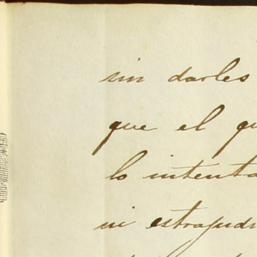 sin darles
que el qu
lo intenta
ni estrajudi